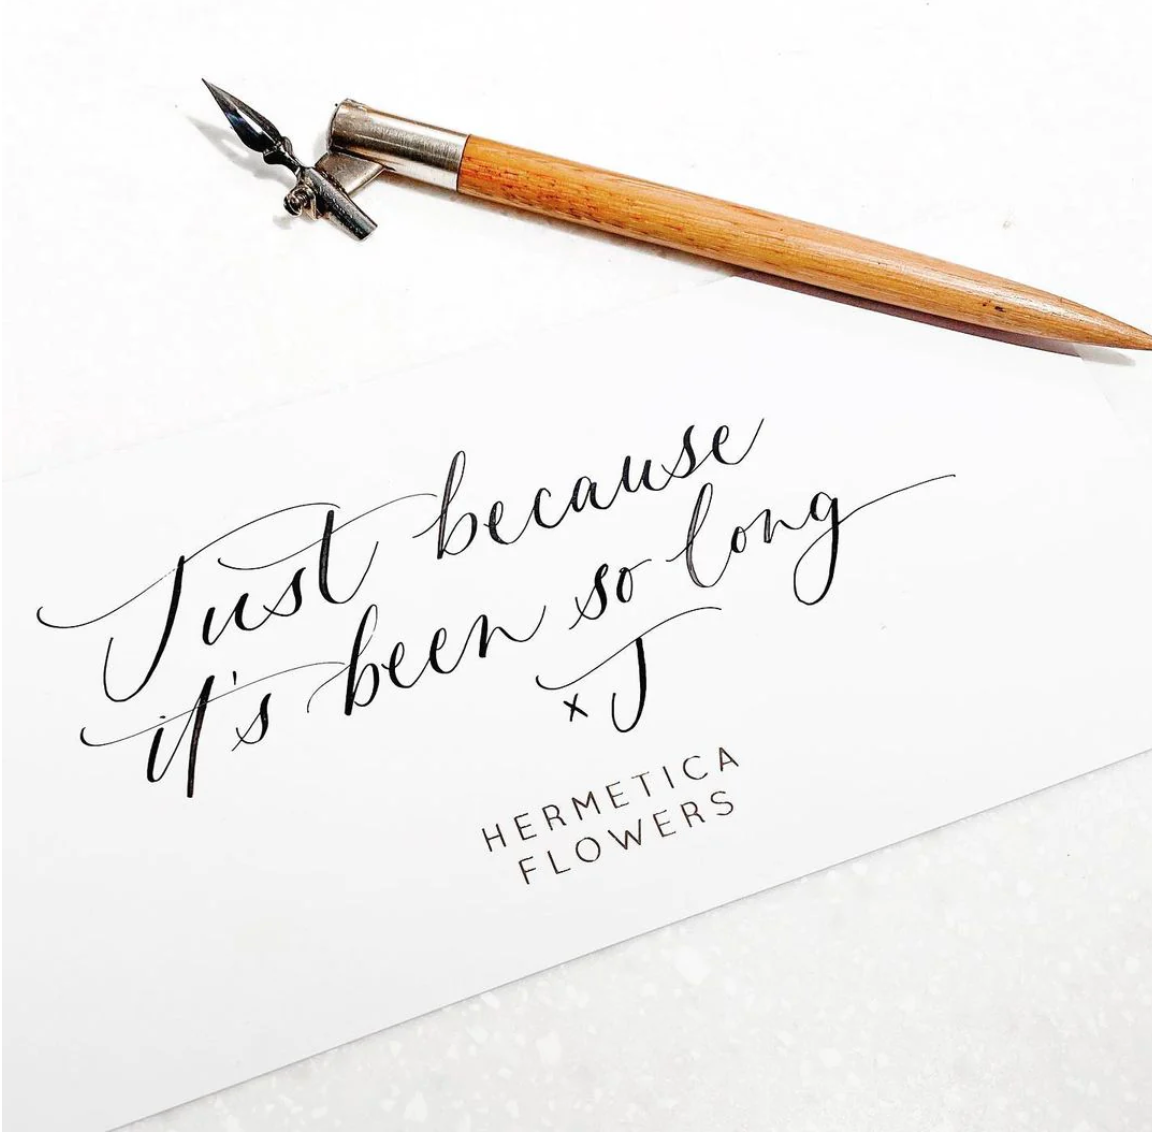 Just because
it's been so long
x J
HERMETICA
FLOWERS